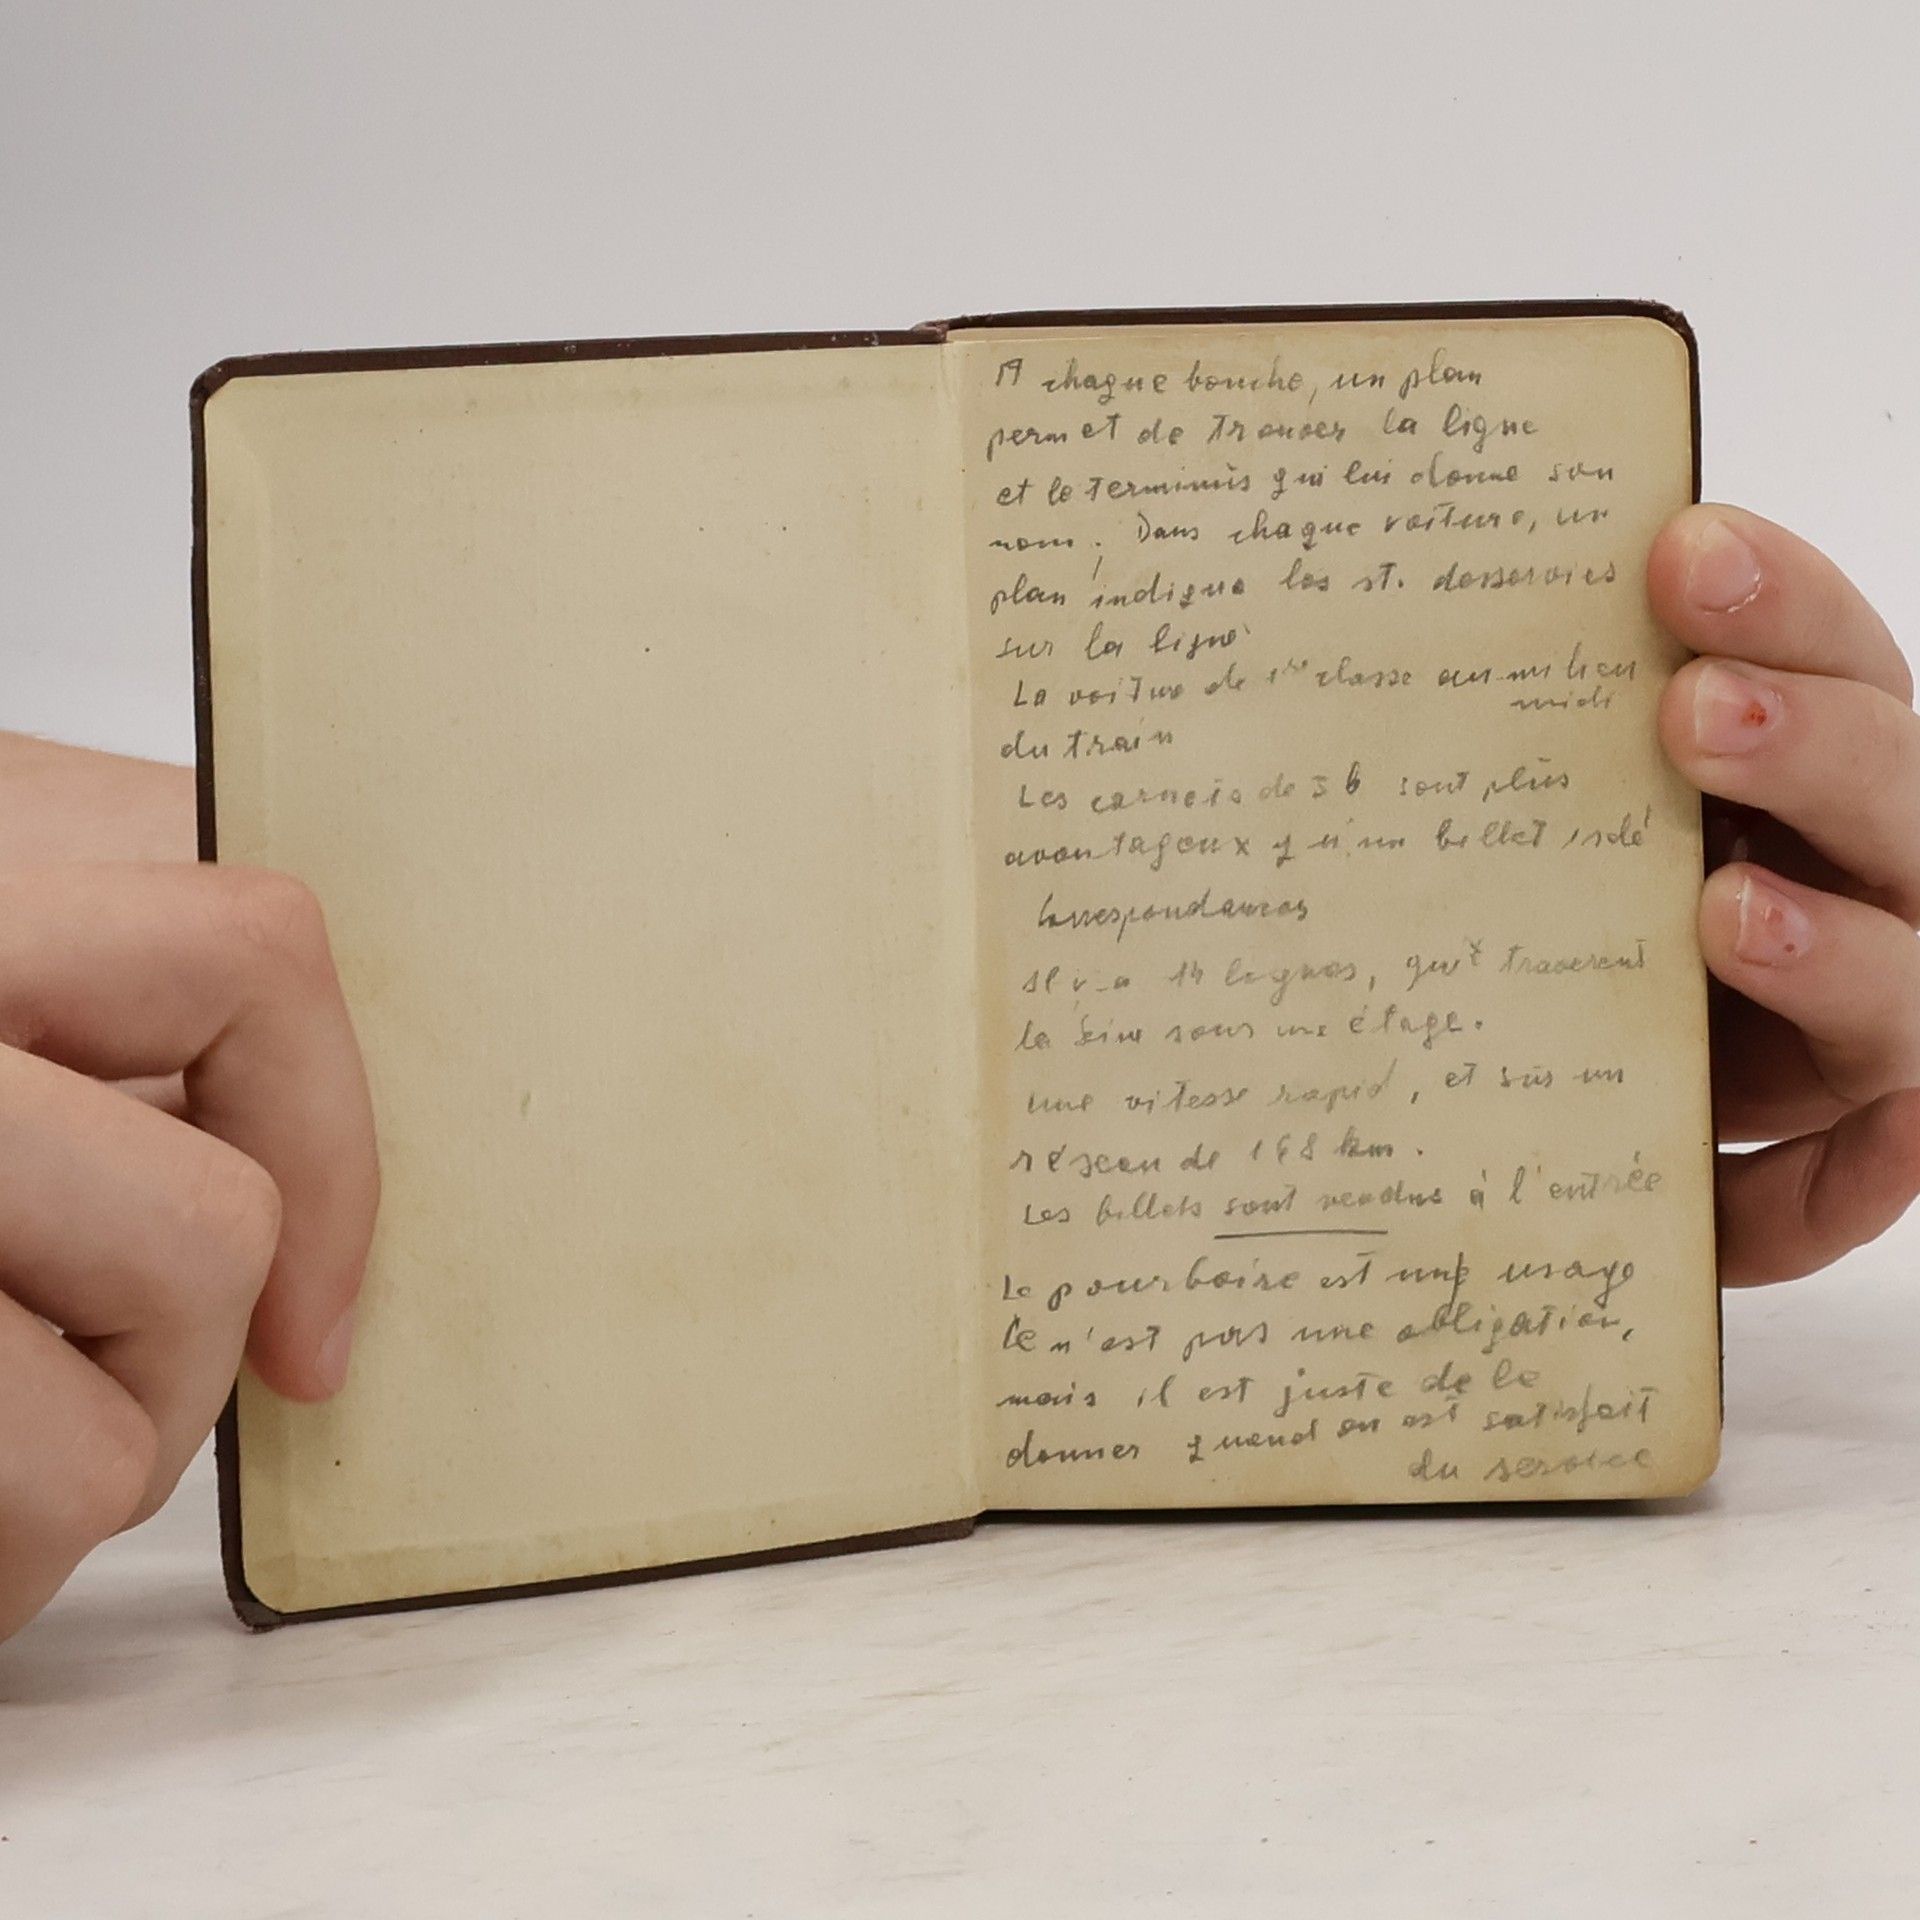 A chaque bouche, un plan
permet de trouver la ligne
et le terminus qui lui donne son
nom. Dans chaque voiture, un
plan indique les st. desservies
sur la ligne
La voiture de 1re classe au milieu
midi
du train
Les carnets de 5 6 sont plus
avantageux qu'un billet isolé
Correspondances
Il y a 14 lignes, qui traversent
la Seine sous une étage.
une vitesse rapid, et sus un
réseau de 168 km.
Les billets sont vendus à l'entrée
Le pourboire est une usage
Ce n'est pas une obligation,
mais il est juste de le
donner quand on est satisfait
du service